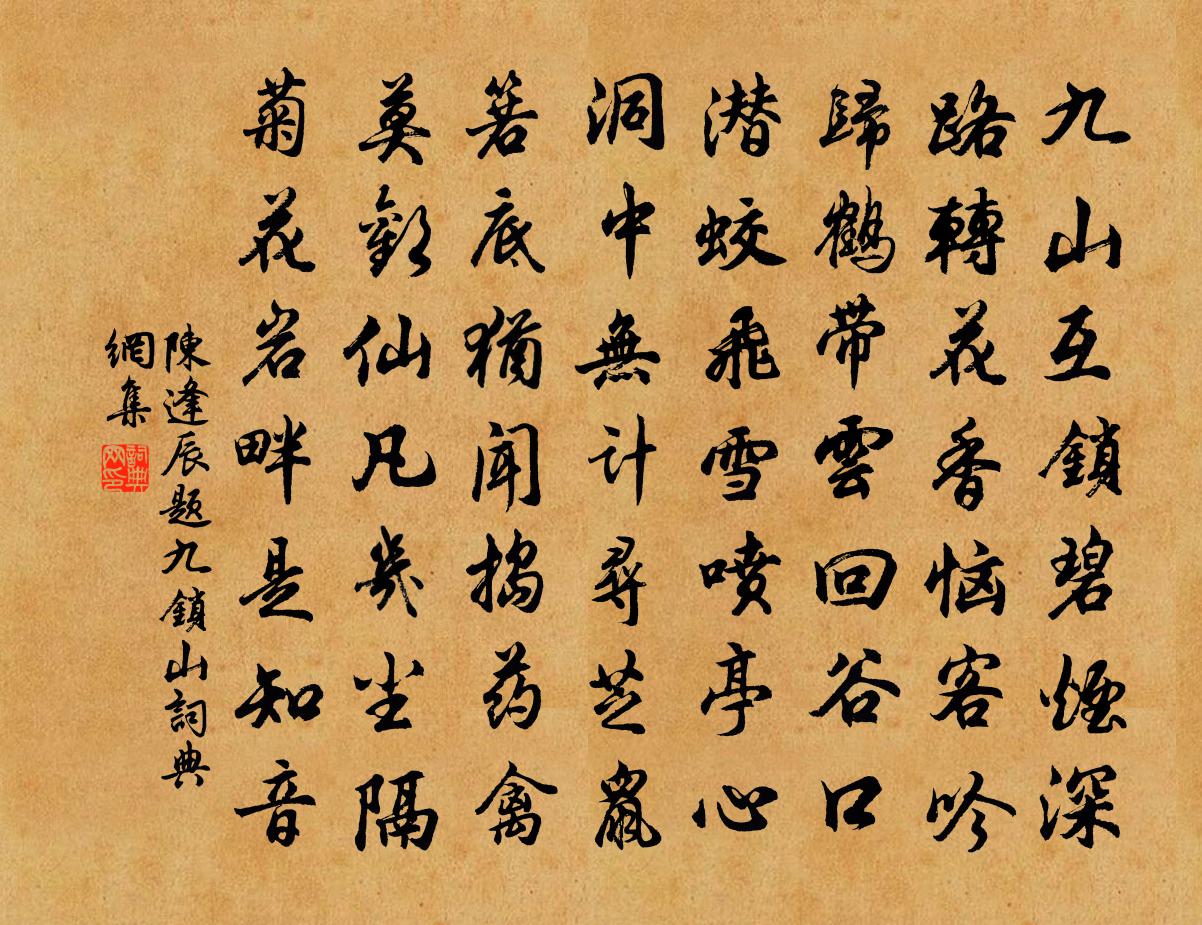 九山互鎖碧煙深
路轉花香恼客吟
歸鶴带雲回谷口
潜蛟飛雪喷亭心
洞中無计尋芝鼠
箬底猶闻搗药禽
莫仙凡幾尘隔
菊花岩畔是知音
陳逢辰题九鎖山詞典
網集
詞典
网印